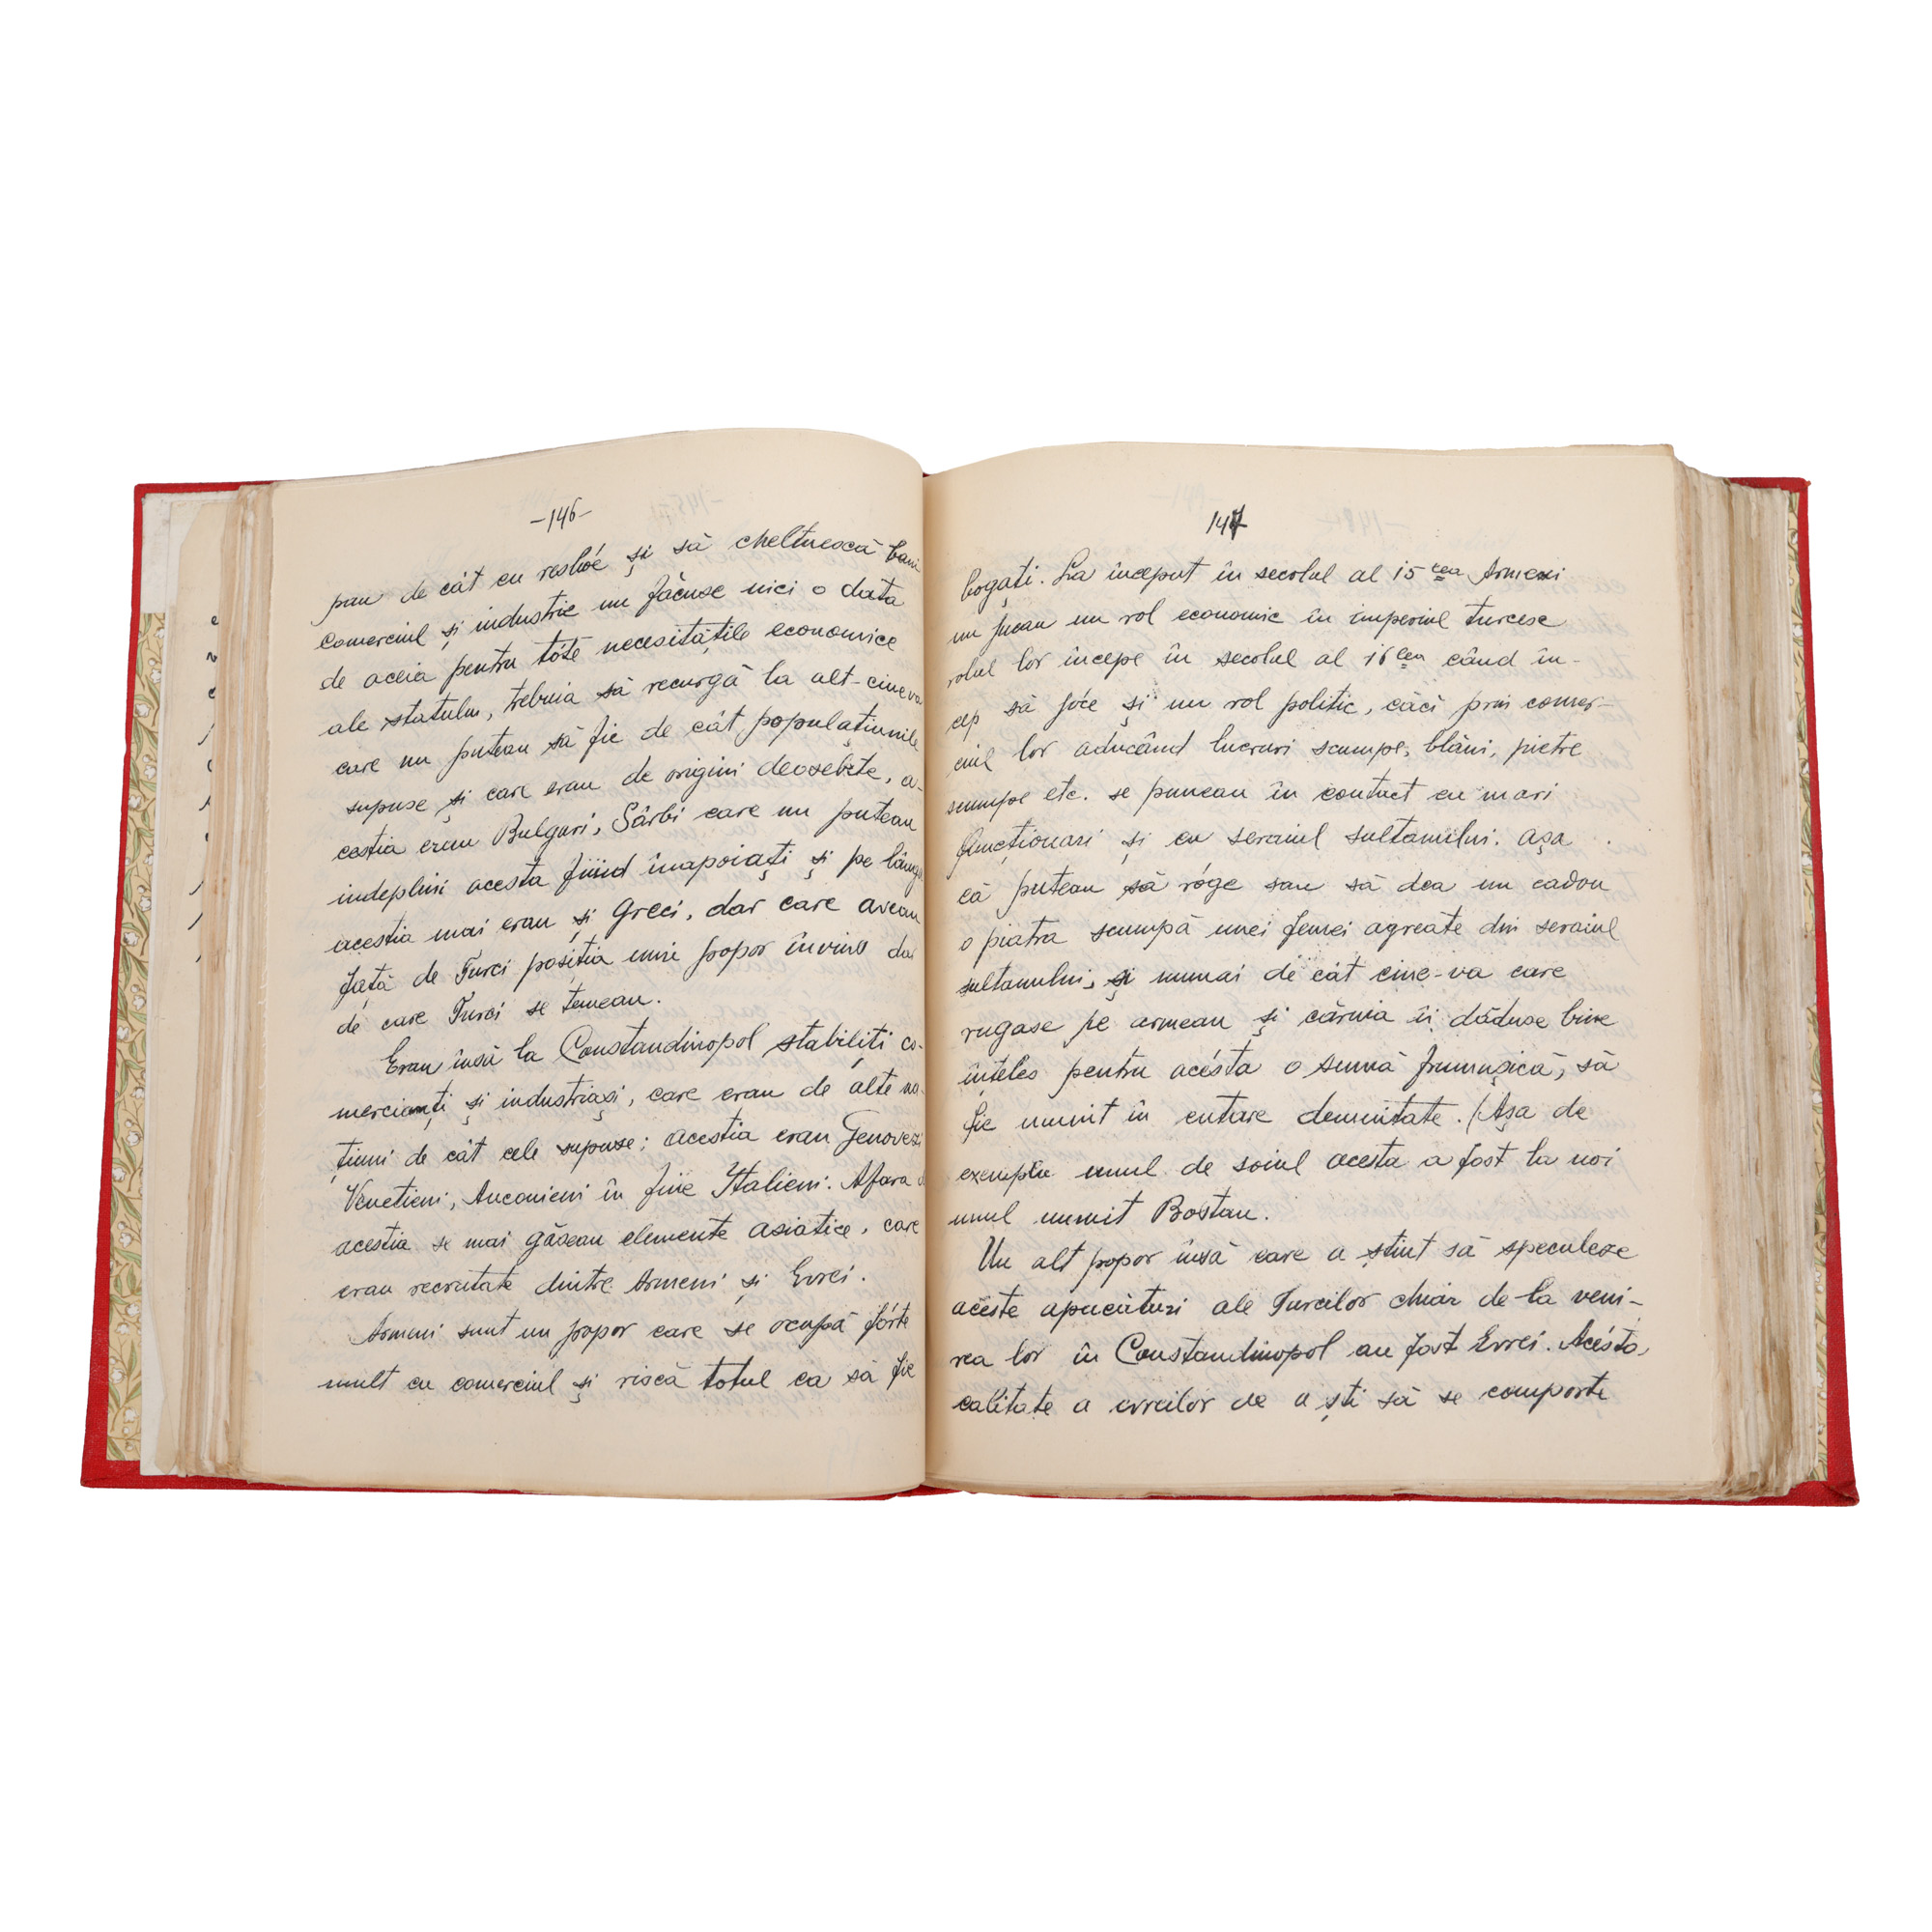 -146-
pau de cât cu resbóe și să cheltuescă bani
comerciul și industrie nu făcuse nici o data
de aceia pentru tóte necesitățile economice
ale statului, trebuia să recurgă la alt-cineva
care nu puteau să fie de cât populațiunile
supuse și care erau de origini deosebite, a-
cestia erau Bulgari, Sârbi care nu puteau
indeplini acesta fiind înapoiați și pe lângă
acestia mai erau și Greci, dar care aveau
față de Turci poziția unui popor învins dar
de care Turci se temeau.
Erau însă la Constandinopol stabiliți co-
mercianți și industriași, care erau de alte na-
țiuni de cât cele supuse; acestia erau Genovezi
Venetieni, Anconieni în fine Italieni. Afara
acestia se mai găseau elemente asiatice, care
erau recrutate dintre Armeni și Evrei.
Armeni sunt un popor care se ocupă fórte
mult cu comerciul și riscă totul ca să fie
147
bogați. La început în secolul al 15 lea Armeni
nu jucau un rol economic în imperiul turcesc
rolul lor începe în secolul al 16 lea când în-
cep să jóce și un rol politic, căci prin comer-
ciul lor aducând lucruri scumpe, blăni, pietre
scumpe etc. se puneau în contact cu mari
funcționari și cu seraiul sultanului. așa
că puteau să róge sau să dea un cadou
o piatra scumpă unei femei agreate din seraiul
sultanului, și numai de cât cine-va care
rugase pe armean și căruia îi dăduse bine
înțeles pentru acésta o sumă frumușică, să
fie numit în cutare demnitate. (Așa de
exemplu unul de soiul acesta a fost la noi
unul numit Bostan.
Un alt popor însă care a știut să speculeze
aceste apucături ale Turcilor chiar de la veni-
rea lor în Constandinopol au fost Evrei. Acésta
calitate a evreilor de a ști să se comporte